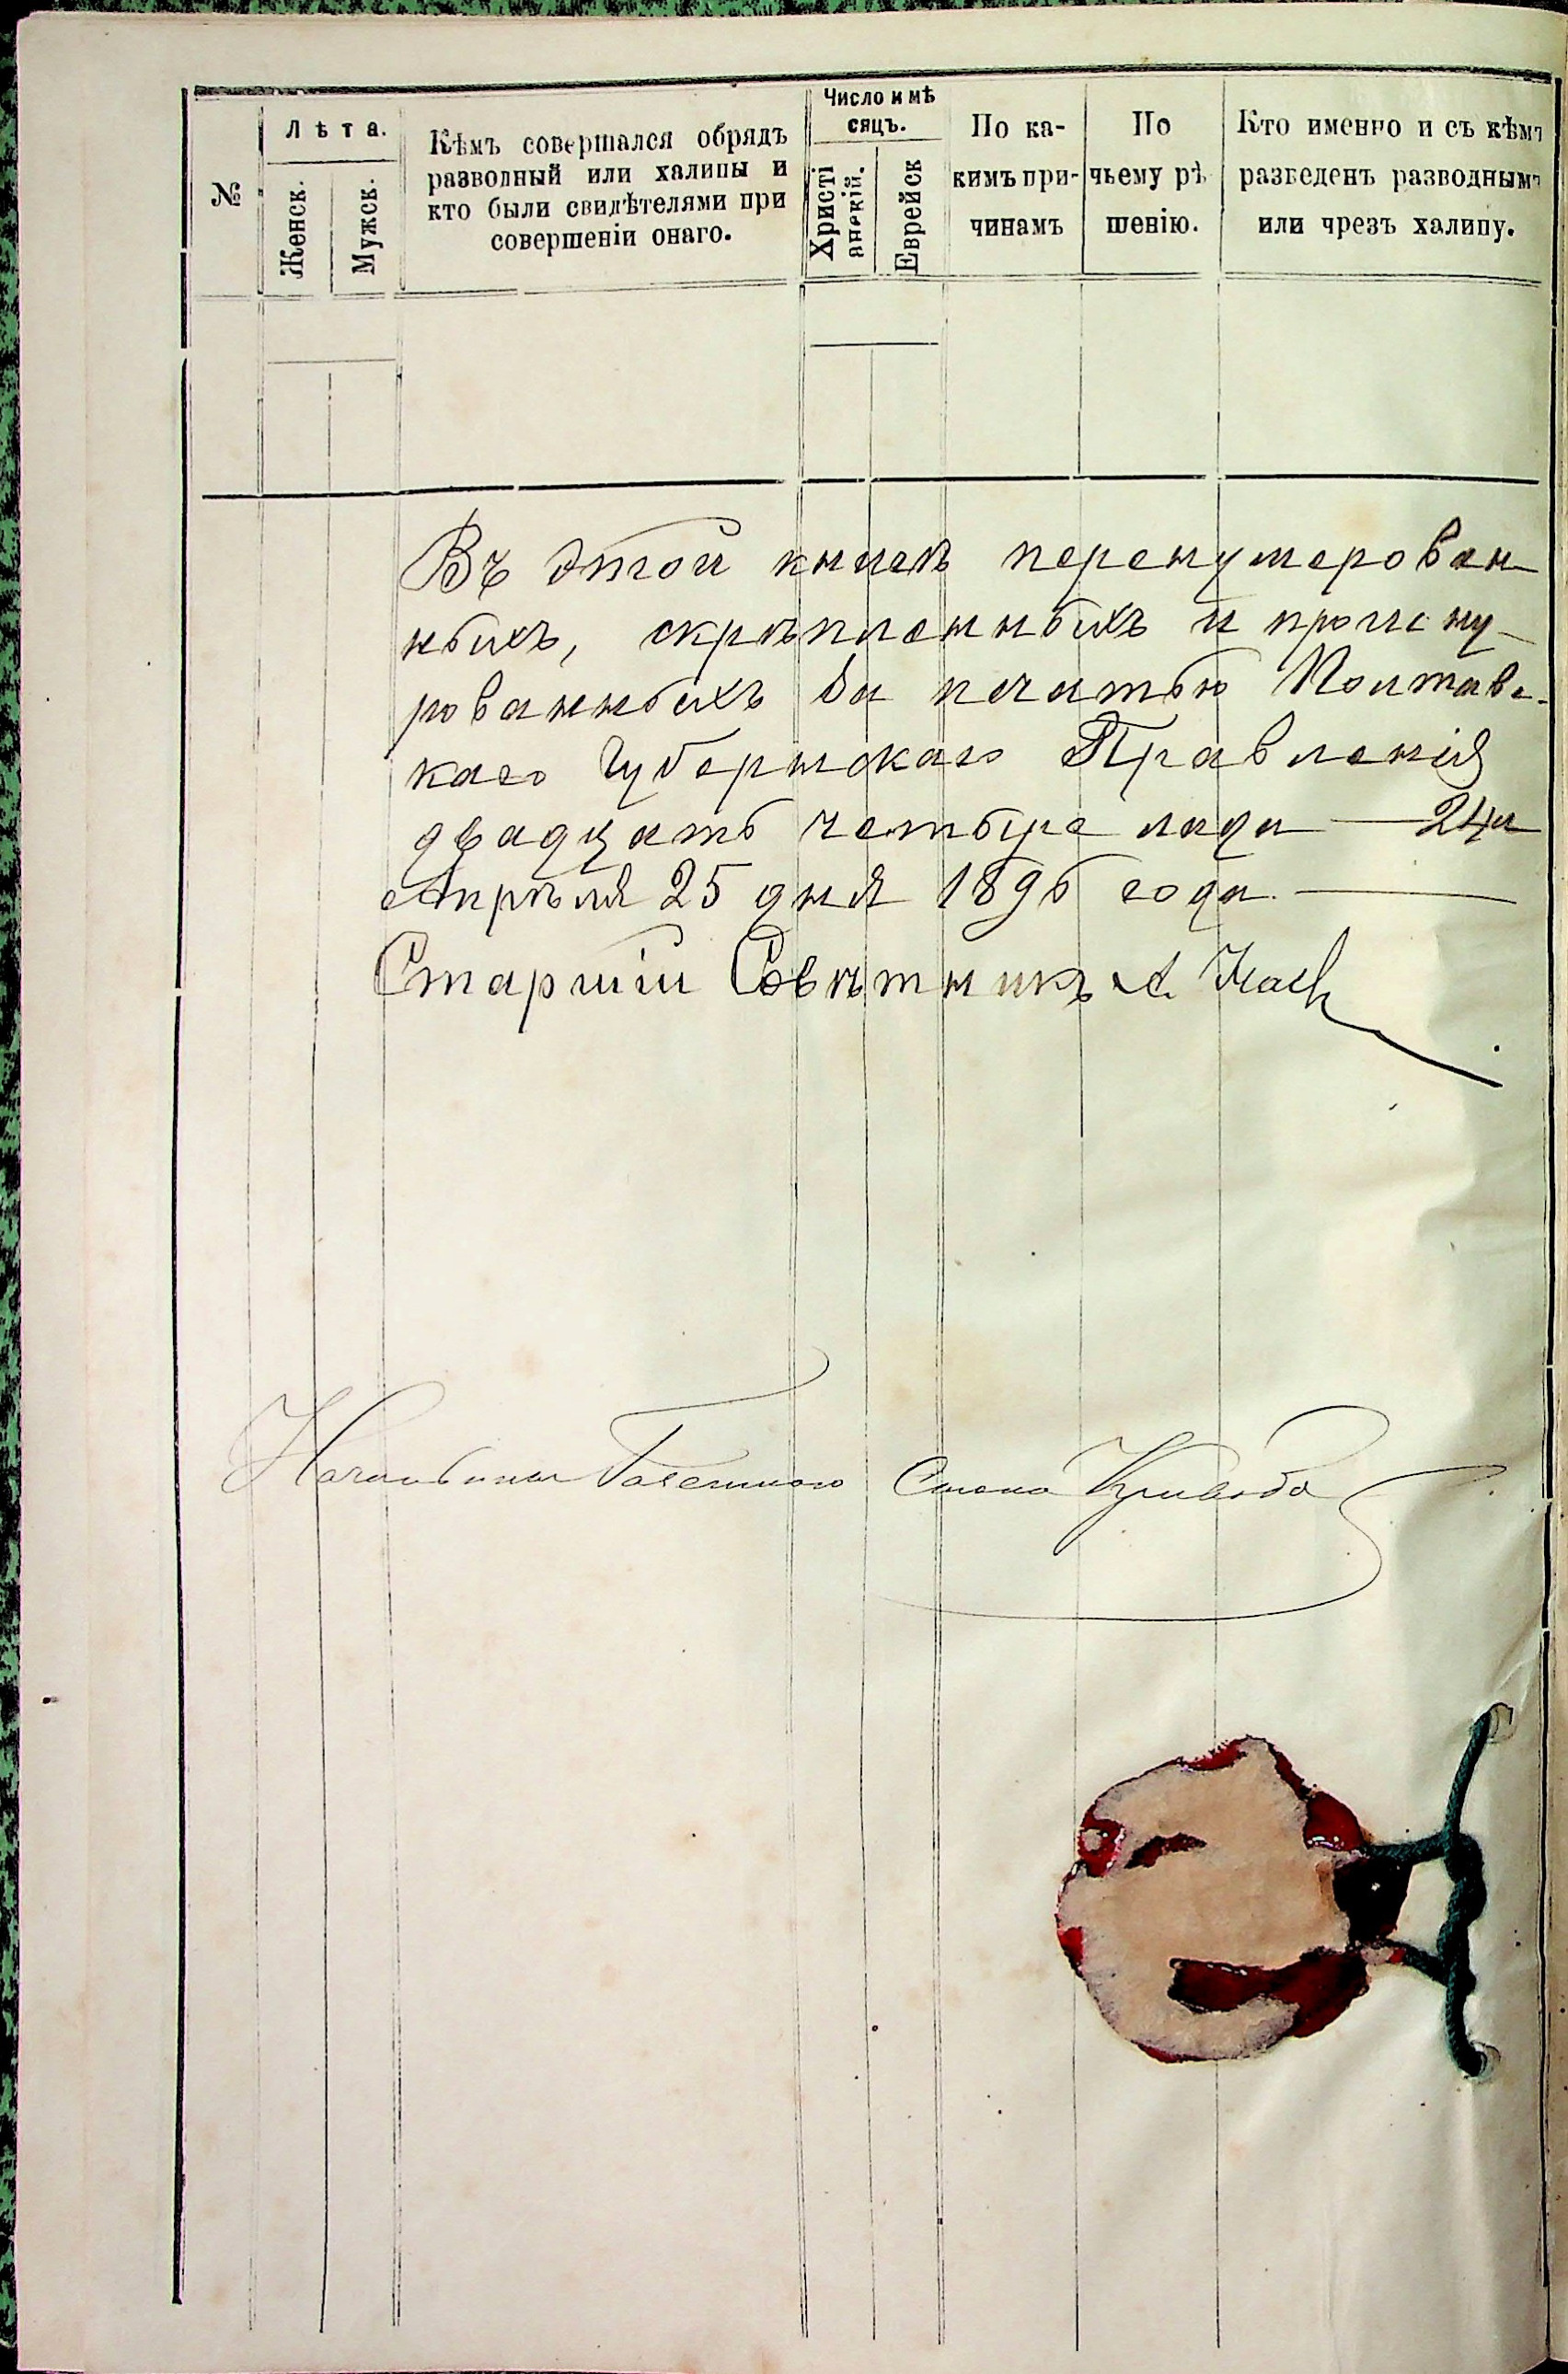 №
Лѣта.
Женск.
Мужск.
Кѣмъ совершался обрядъ
разводный или халицы и
кто были свидѣтелями при
совершеніи онаго.
Число и мѣ
сяцъ.
Христі
анскій.
Еврейск
По ка-
кимъ при-
чинамъ
По
чьему рѣ
шенію.
Кто именно и съ кѣмъ
разведенъ разводнымъ
или чрезъ халицу.
Въ этой книгѣ перенумерован
ныхъ, скрѣпленныхъ и прошну-
рованныхъ за печатью Полтавс-
каго Губернскаго Правленія
двадцать четыре лида — 24л
Апрѣля 25 дня 1896 года. —
Старшій Совѣтникъ А.
Стола